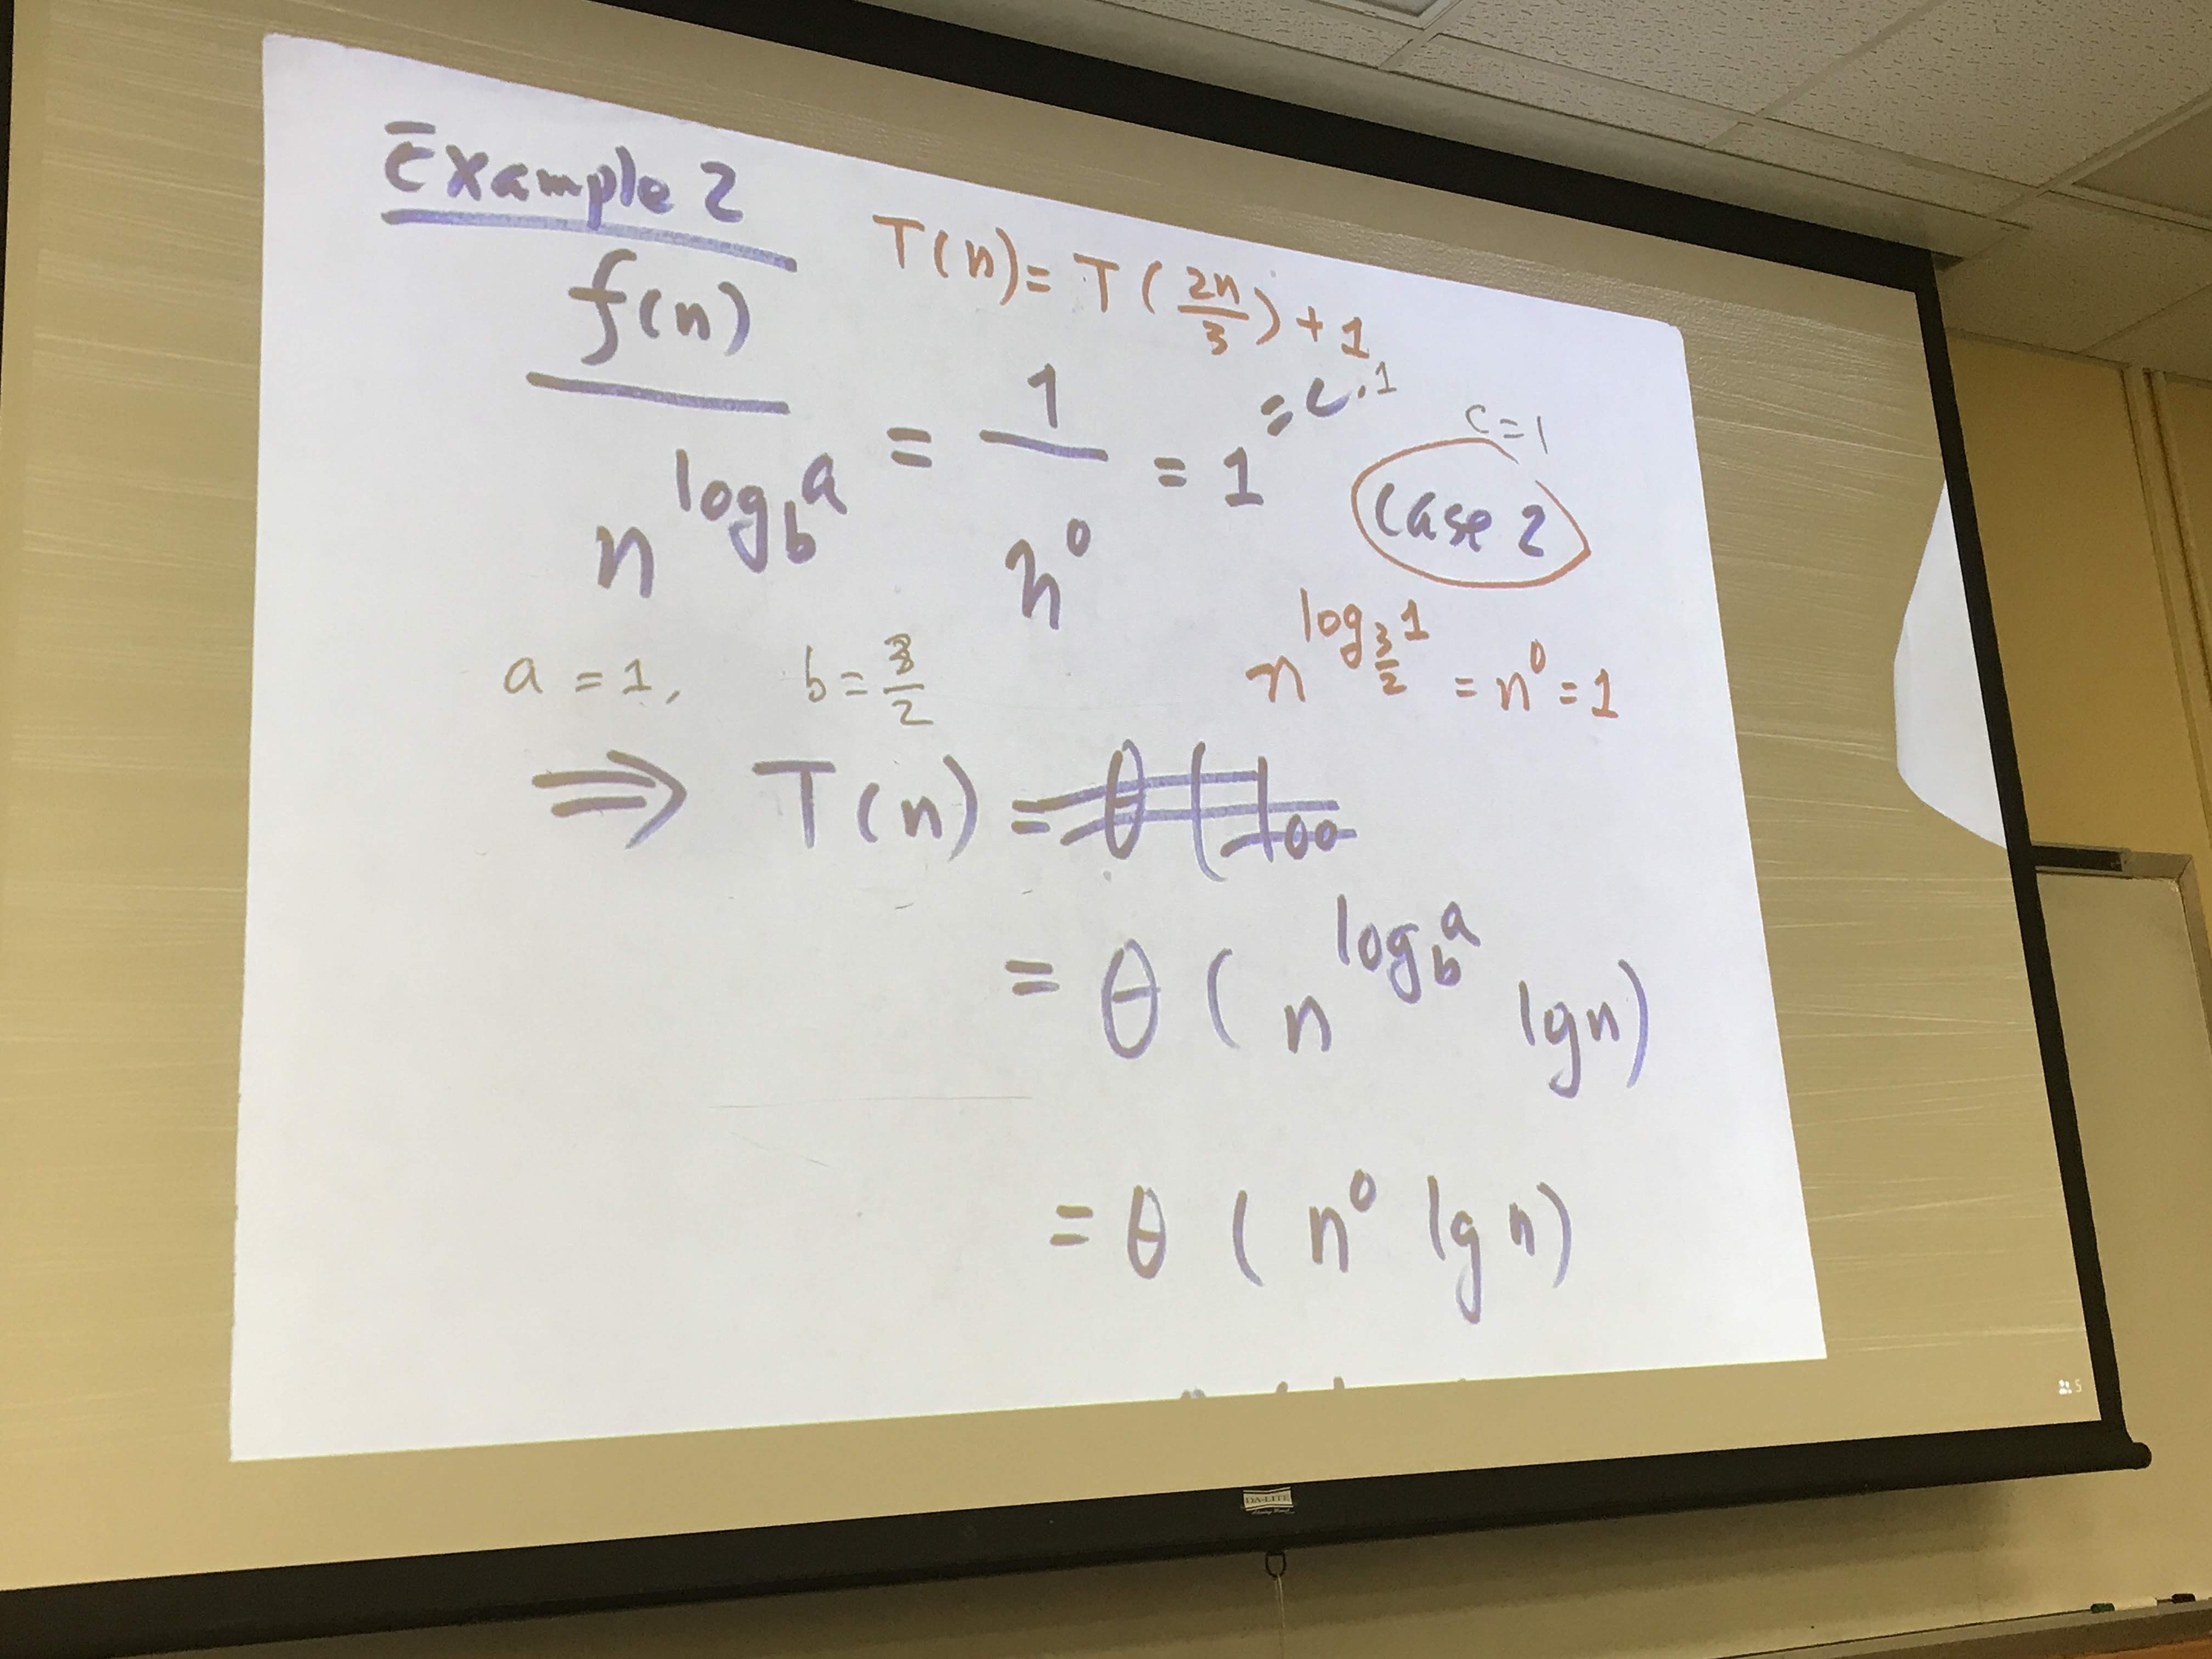 Example 2
T(n) = T(2n/3) + 1
f(n) / n^log_b a = 1 / n^0 = 1 = c.1
c = 1
case 2
a = 1, b = 3/2
n^log_3/2 1 = n^0 = 1
⇒ T(n) =
= θ ( n^log_b a lgn)
= θ ( n^0 lg n)
5
DA-LITE